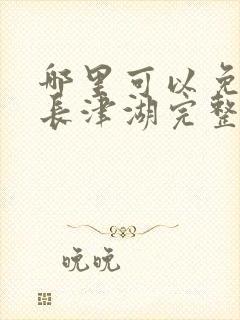 哪里可以免
長津湖完整
晚晚